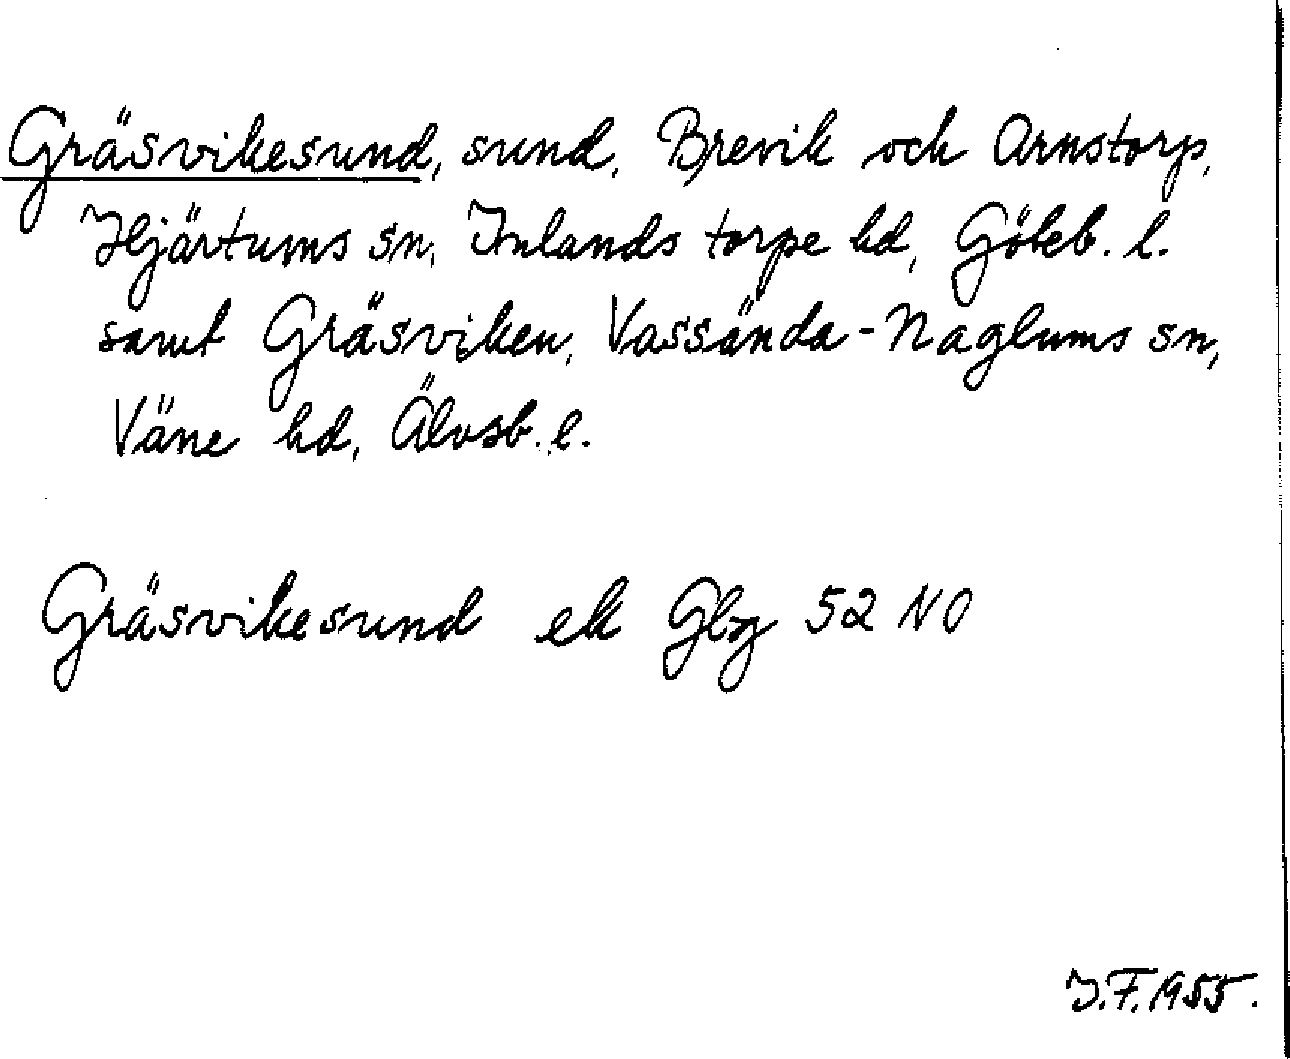 Gräsvikesund, sund, Brevik och Arnstorp,
Hjärtums sn, Inlands torpe hd, Göteb. l.
samt Gräsviken, Vassända-Naglums sn,
Väne hd, Älvsb. l.
Gräsvikesund ek Gbg 52 NO
I.F. 1955.